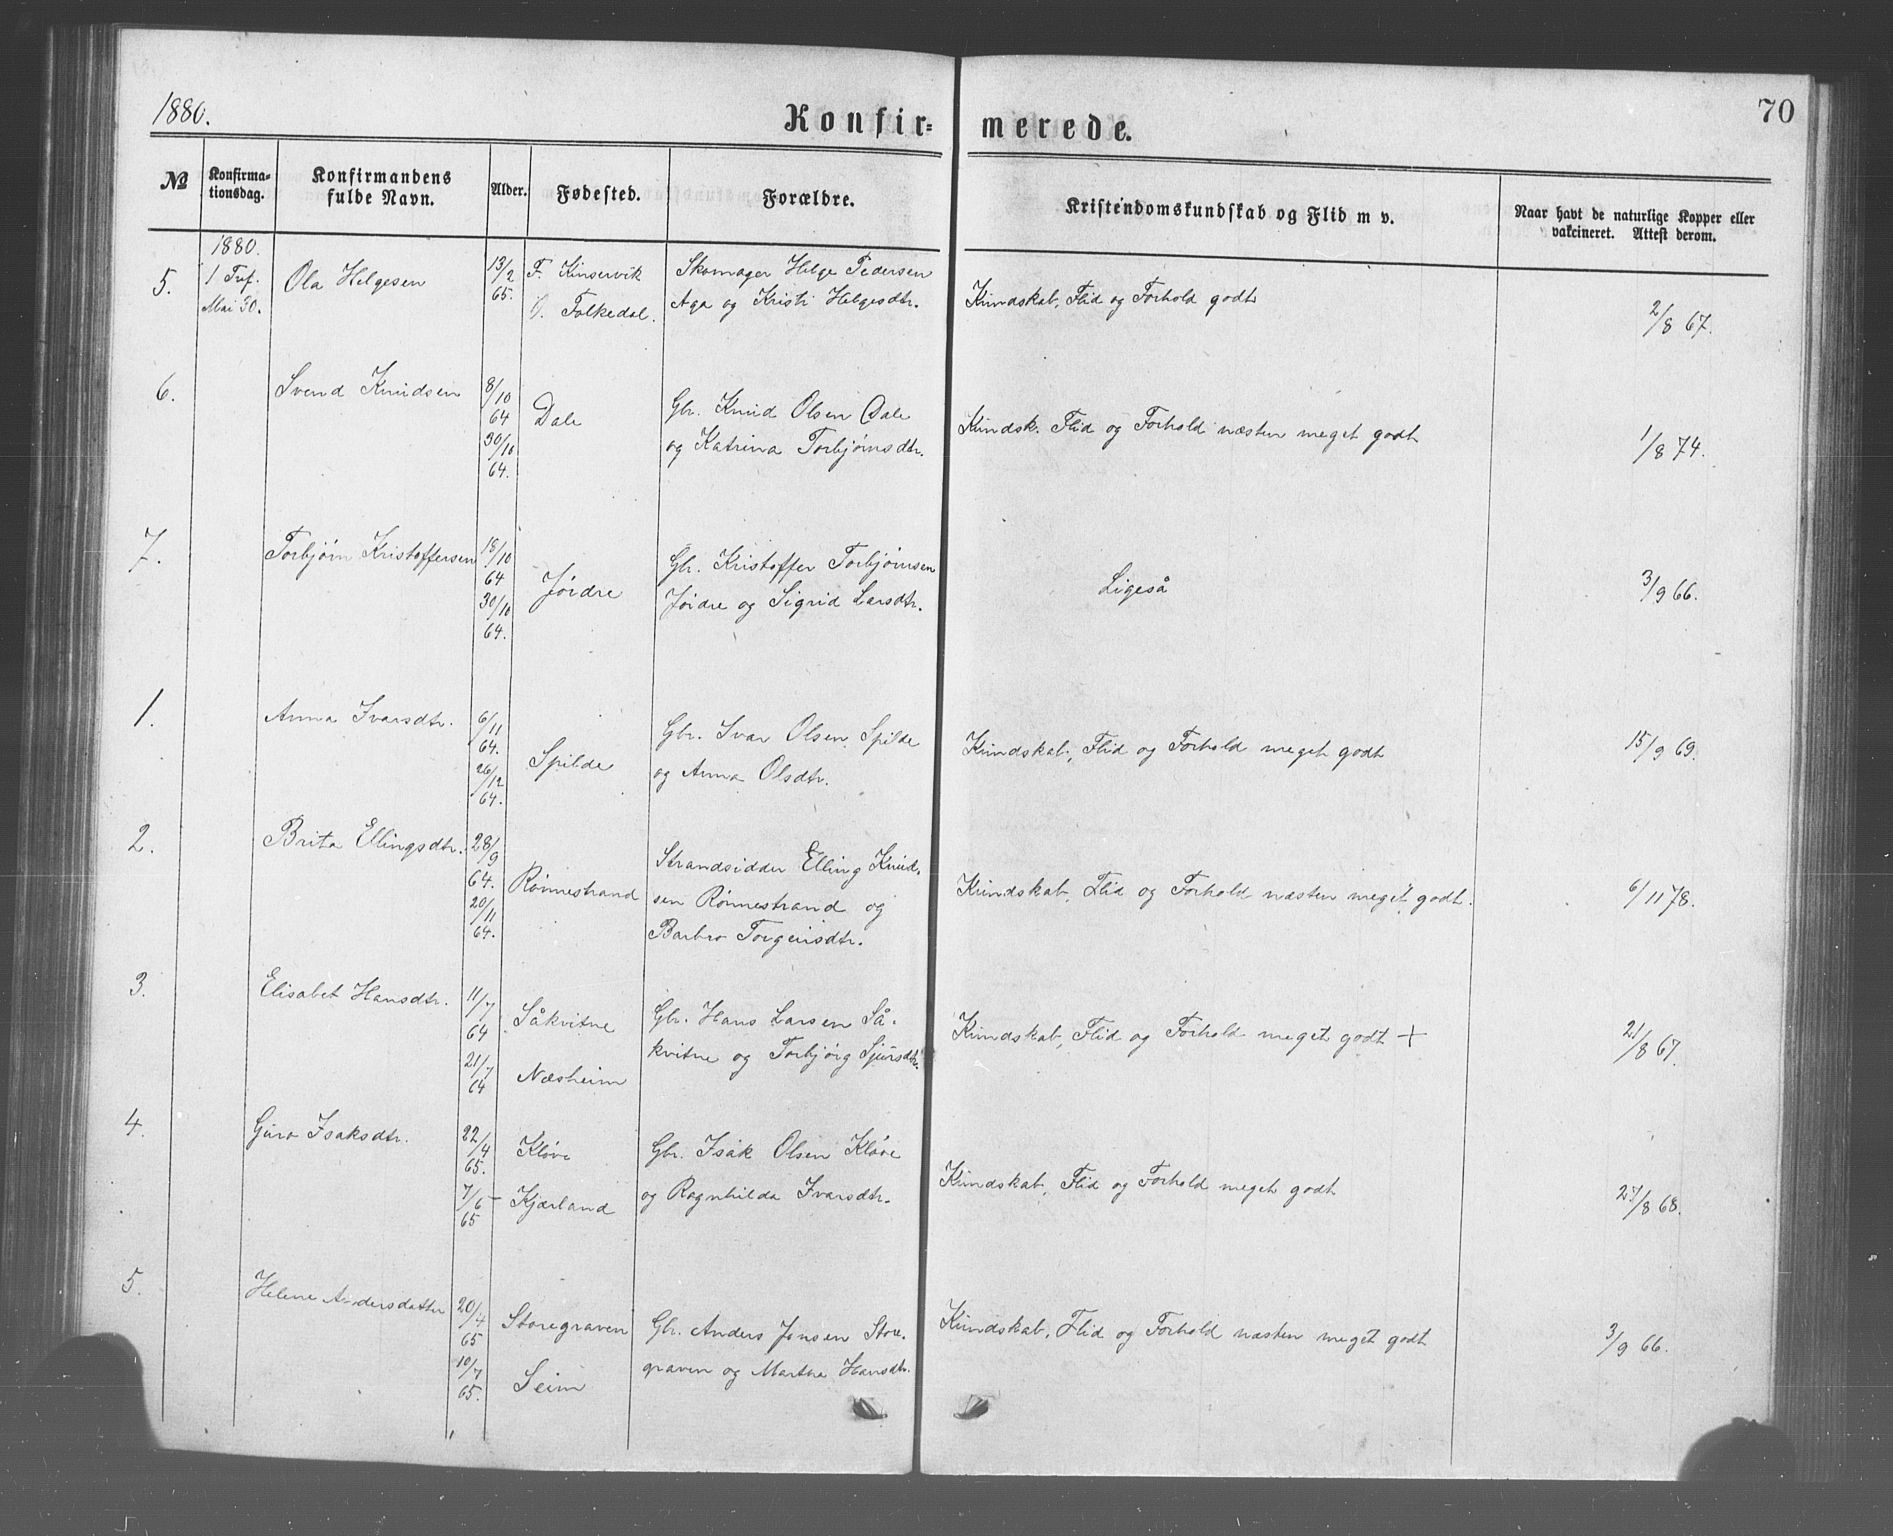 1880.
Konfir=
merede.
70
№
Konfirma-
tionsdag.
Konfirmandens
fulde Navn.
Alder.
Fødested.
Forældre.
Kristendomskundskab og Flid m v.
Naar havt de naturlige Kopper eller
vakcineret. Attest derom.
5.
1880.
1 Trf.
Mai 30.
Ola Helgesen
13/2
65.
F. Kinservik
O. Folkedal.
Skomager Helge Pedersen
Aga og Kristi Helgesdtr.
Kundskab, Flid og Forhold godt
2/8 67.
6.
Svend Knudsen
8/10
64
30/10
64.
Dale
Gbr. Knud Olsen Dale
og Katrina Torbjörnsdtr.
Kundsk. Flid og Forhold næsten meget godt
1/8 74.
7.
Torbjörn Kristoffersen
18/10
64
30/10
64.
Jöidre
Gbr. Kristoffer Torbjörnsen
Jöidre og Sigrid Larsdtr.
Ligeså
3/9 66.
1.
Anna Ivarsdtr.
6/11
64.
26/12
64.
Spilde
Gbr. Ivar Olsen Spilde
og Anna Olsdtr.
Kundskab, Flid og Forhold meget godt
15/9 69.
2.
Brita Ellingsdtr.
28/9
64.
20/11
64.
Rönnestrand
Strandsidder Elling Knud-
sen Rönnestrand og
Barbro Torgeirsdtr.
Kundskab, Flid og Forhold næsten meget godt.
6/11 78.
3.
Elisabet Hansdtr.
11/7
64
21/7
64
Såkvitne
Næsheim
Gbr. Hans Larsen Så-
kvitne og Torbjörg Sjursdtr.
Kundskab, Flid og Forhold meget godt +
21/8 67.
4.
Guro Isaksdtr.
22/4
65.
7/6
65
Klöve
Kjærland
Gbr. Isak Olsen Klöve
og Ragnhilda Ivarsdtr.
Kundskab, Flid og Forhold meget godt
27/8 68.
5.
Helene Andersdatter
20/4
65
10/7
65.
Storegraven
Seim
Gbr. Anders Jonsen Store-
graven og Martha Hansdtr.
Kundskab, Flid og Forhold næsten meget godt
3/9 66.